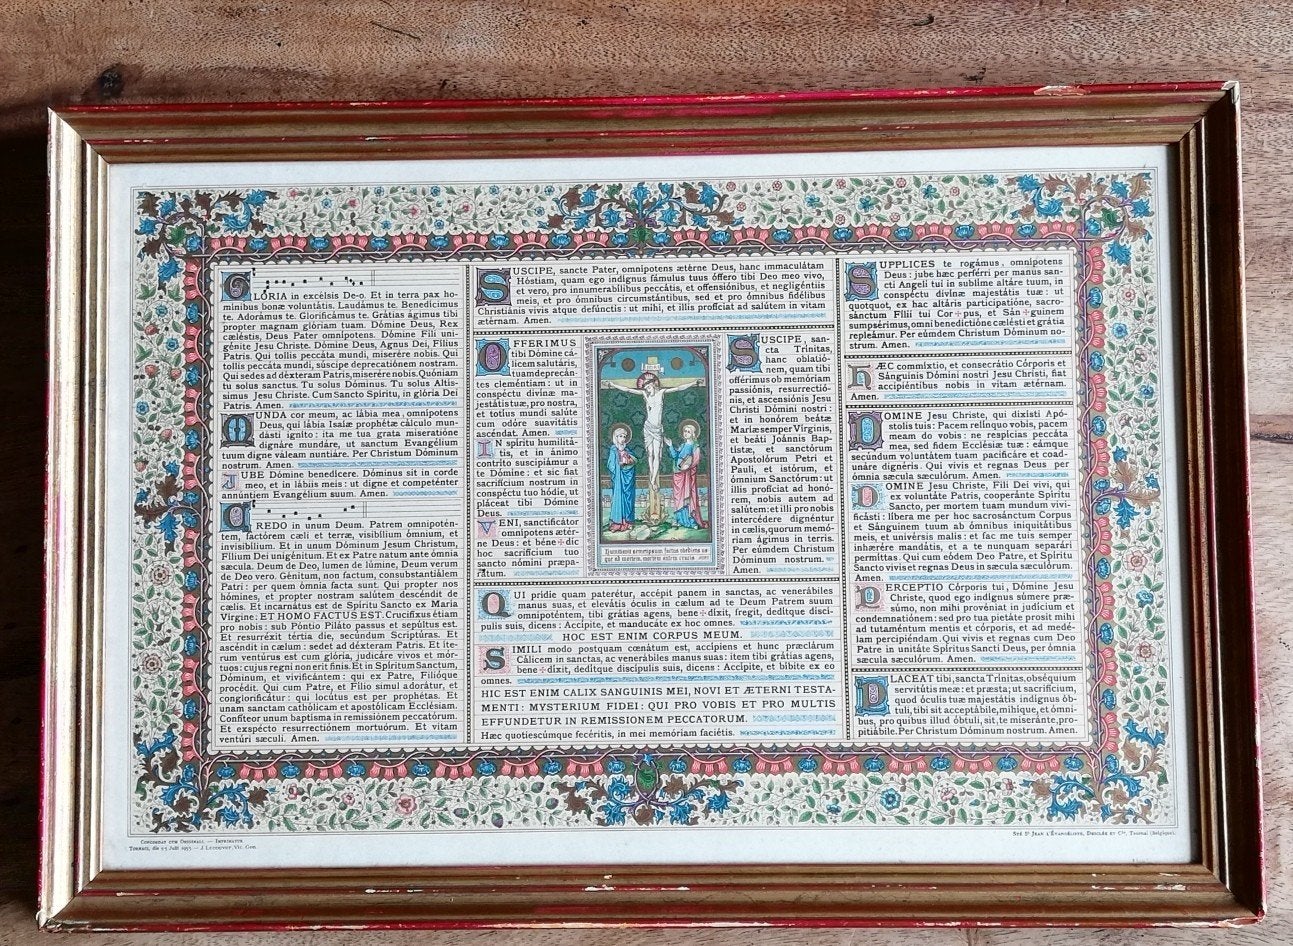 GLÓRIA in excélsis De-o. Et in terra pax ho-
mínibus bonæ voluntátis. Laudámus te. Benedícimus
te. Adorámus te. Glorificámus te. Grátias ágimus tibi
propter magnam glóriam tuam. Dómine Deus, Rex
cæléstis, Deus Pater omnípotens. Dómine Fili uni-
génite Jesu Christe. Dómine Deus, Agnus Dei, Fílius
Patris. Qui tollis peccáta mundi, miserére nobis. Qui
tollis peccáta mundi, súscipe deprecatiónem nostram.
Qui sedes ad déxteram Patris, miserére nobis. Quóniam
tu solus sanctus. Tu solus Dóminus. Tu solus Altís-
simus Jesu Christe. Cum Sancto Spíritu, in glória Dei
Patris. Amen.
MUNDA cor meum, ac lábia mea, omnípotens
Deus, qui lábia Isaíæ prophétæ cálculo mun-
dásti igníto: ita me tua grata miseratióne
dignáre mundáre, ut sanctum Evangélium
tuum digne váleam nuntiáre. Per Christum Dóminum
nostrum. Amen.
JUBE Dómine benedícere. Dóminus sit in corde
meo, et in lábiis meis: ut digne et competénter
annúntiem Evangélium suum. Amen.
CREDO in unum Deum. Patrem omnipotén-
tem, factórem cæli et terræ, visibílium ómnium, et
invisibílium. Et in unum Dóminum Jesum Christum,
Fílium Dei unigénitum. Et ex Patre natum ante ómnia
sæcula. Deum de Deo, lumen de lúmine, Deum verum
de Deo vero. Génitum, non factum, consubstantiálem
Patri: per quem ómnia facta sunt. Qui propter nos
hómines, et propter nostram salútem descéndit de
cælis. Et incarnátus est de Spíritu Sancto ex María
Vírgine: ET HOMO FACTUS EST. Crucifíxus étiam
pro nobis: sub Póntio Piláto passus et sepúltus est.
Et resurréxit tértia die, secúndum Scriptúras. Et
ascéndit in cælum: sedet ad déxteram Patris. Et íte-
rum ventúrus est cum glória, judicáre vivos et mór-
tuos: cujus regni non erit finis. Et in Spíritum Sanctum,
Dóminum, et vivificántem: qui ex Patre, Filióque
procédit. Qui cum Patre, et Fílio simul adorátur, et
conglorificátur: qui locútus est per prophétas. Et
unam sanctam cathólicam et apostólicam Ecclésiam.
Confíteor unum baptísma in remissiónem peccatórum.
Et exspécto resurrectiónem mortuórum. Et vitam
ventúri sæculi. Amen.
SUSCIPE, sancte Pater, omnípotens ætérne Deus, hanc immaculátam
Hóstiam, quam ego indígnus fámulus tuus óffero tibi Deo meo vivo,
et vero, pro innumerabílibus peccátis, et offensiónibus, et negligéntiis
meis, et pro ómnibus circumstántibus, sed et pro ómnibus fidélibus
Christiánis vivis atque defúnctis: ut mihi, et illis profíciat ad salútem in vitam
ætérnam. Amen.
OFFERIMUS
tibi Dómine cá-
licem salutáris,
tuam deprecán-
tes cleméntiam: ut in
conspéctu divínæ ma-
jestátis tuæ, pro nostra,
et totíus mundi salúte
cum odóre suavitátis
ascéndat. Amen.
IN spíritu humilitá-
tis, et in ánimo
contríto suscipiámur a
te Dómine: et sic fiat
sacrifícium nostrum in
conspéctu tuo hódie, ut
pláceat tibi Dómine
Deus.
VENI, sanctificátor
omnípotens ætér-
ne Deus: et béne+dic
hoc sacrifícium tuo
sancto nómini præpa-
rátum.
INRI
Humiliavit semetipsum factus obediens us
que ad mortem, mortem autem crucis
SUSCIPE, san-
cta Trínitas,
hanc oblatió-
nem, quam tibi
offérimus ob memóriam
passiónis, resurrectió-
nis, et ascensiónis Jesu
Christi Dómini nostri:
et in honórem beátæ
Maríæ semper Vírginis,
et beáti Joánnis Bap-
tístæ, et sanctórum
Apostolórum Petri et
Pauli, et istórum, et
ómnium Sanctórum: ut
illis profíciat ad honó-
rem, nobis autem ad
salútem: et illi pro nobis
intercédere dignéntur
in cælis, quorum memó-
riam ágimus in terris.
Per eúmdem Christum
Dóminum nostrum.
Amen.
QUI prídie quam paterétur, accépit panem in sanctas, ac venerábiles
manus suas, et elevátis óculis in cælum ad te Deum Patrem suum
omnipoténtem, tibi grátias agens, bene+díxit, fregit, dedítque discí-
pulis suis, dicens: Accípite, et manducáte ex hoc omnes.
HOC EST ENIM CORPUS MEUM.
SIMILI modo postquam cœnátum est, accípiens et hunc præclárum
Cálicem in sanctas, ac venerábiles manus suas: item tibi grátias agens,
bene+díxit, dedítque discípulis suis, dicens: Accípite, et bíbite ex eo
omnes.
HIC EST ENIM CALIX SANGUINIS MEI, NOVI ET ÆTERNI TESTA-
MENTI: MYSTERIUM FIDEI: QUI PRO VOBIS ET PRO MULTIS
EFFUNDETUR IN REMISSIONEM PECCATORUM.
Hæc quotiescúmque fecéritis, in mei memóriam faciétis.
SUPPLICES te rogámus, omnípotens
Deus: jube hæc perférri per manus san-
cti Angeli tui in sublíme altáre tuum, in
conspéctu divínæ majestátis tuæ: ut
quotquot, ex hac altáris participatióne, sacro-
sánctum Fílii tui Cor+pus, et Sán+guinem
sumpsérimus, omni benedictióne cælésti et grátia
repleámur. Per eúmdem Christum Dóminum no-
strum. Amen.
HÆC commíxtio, et consecrátio Córporis et
Sánguinis Dómini nostri Jesu Christi, fiat
accipiéntibus nobis in vitam ætérnam.
Amen.
DOMINE Jesu Christe, qui dixísti Apó-
stolis tuis: Pacem relínquo vobis, pacem
meam do vobis: ne respícias peccáta
mea, sed fidem Ecclésiæ tuæ: eámque
secúndum voluntátem tuam pacificáre et coad-
unáre dignéris. Qui vivis et regnas Deus per
ómnia sæcula sæculórum. Amen.
DOMINE Jesu Christe, Fili Dei vivi, qui
ex voluntáte Patris, cooperánte Spíritu
Sancto, per mortem tuam mundum vivi-
ficásti: líbera me per hoc sacrosánctum Corpus
et Sánguinem tuum ab ómnibus iniquitátibus
meis, et univérsis malis: et fac me tuis semper
inhærére mandátis, et a te nunquam separári
permíttas. Qui cum eódem Deo Patre, et Spíritu
Sancto vivis et regnas Deus in sæcula sæculórum.
Amen.
PERCEPTIO Córporis tui, Dómine Jesu
Christe, quod ego indígnus súmere præ-
súmo, non mihi provéniat in judícium et
condemnatiónem: sed pro tua pietáte prosit mihi
ad tutaméntum mentis et córporis, et ad medé-
lam percipiéndam. Qui vivis et regnas cum Deo
Patre in unitáte Spíritus Sancti Deus, per ómnia
sæcula sæculórum. Amen.
PLACEAT tibi, sancta Trínitas, obséquium
servitútis meæ: et præsta; ut sacrifícium,
quod óculis tuæ majestátis indígnus ób-
tuli, tibi sit acceptábile, mihíque, et ómni-
bus, pro quibus illud óbtuli, sit, te miseránte, pro-
pitiábile. Per Christum Dóminum nostrum. Amen.
CONCORDAT CUM ORIGINALI. — IMPRIMATUR
TORNACI, die 25 Julii 1953. — J. LECOUVET, Vic. Gen.
STÉ St JEAN L'ÉVANGÉLISTE, DESCLÉE ET Cie, Tournai (Belgique).